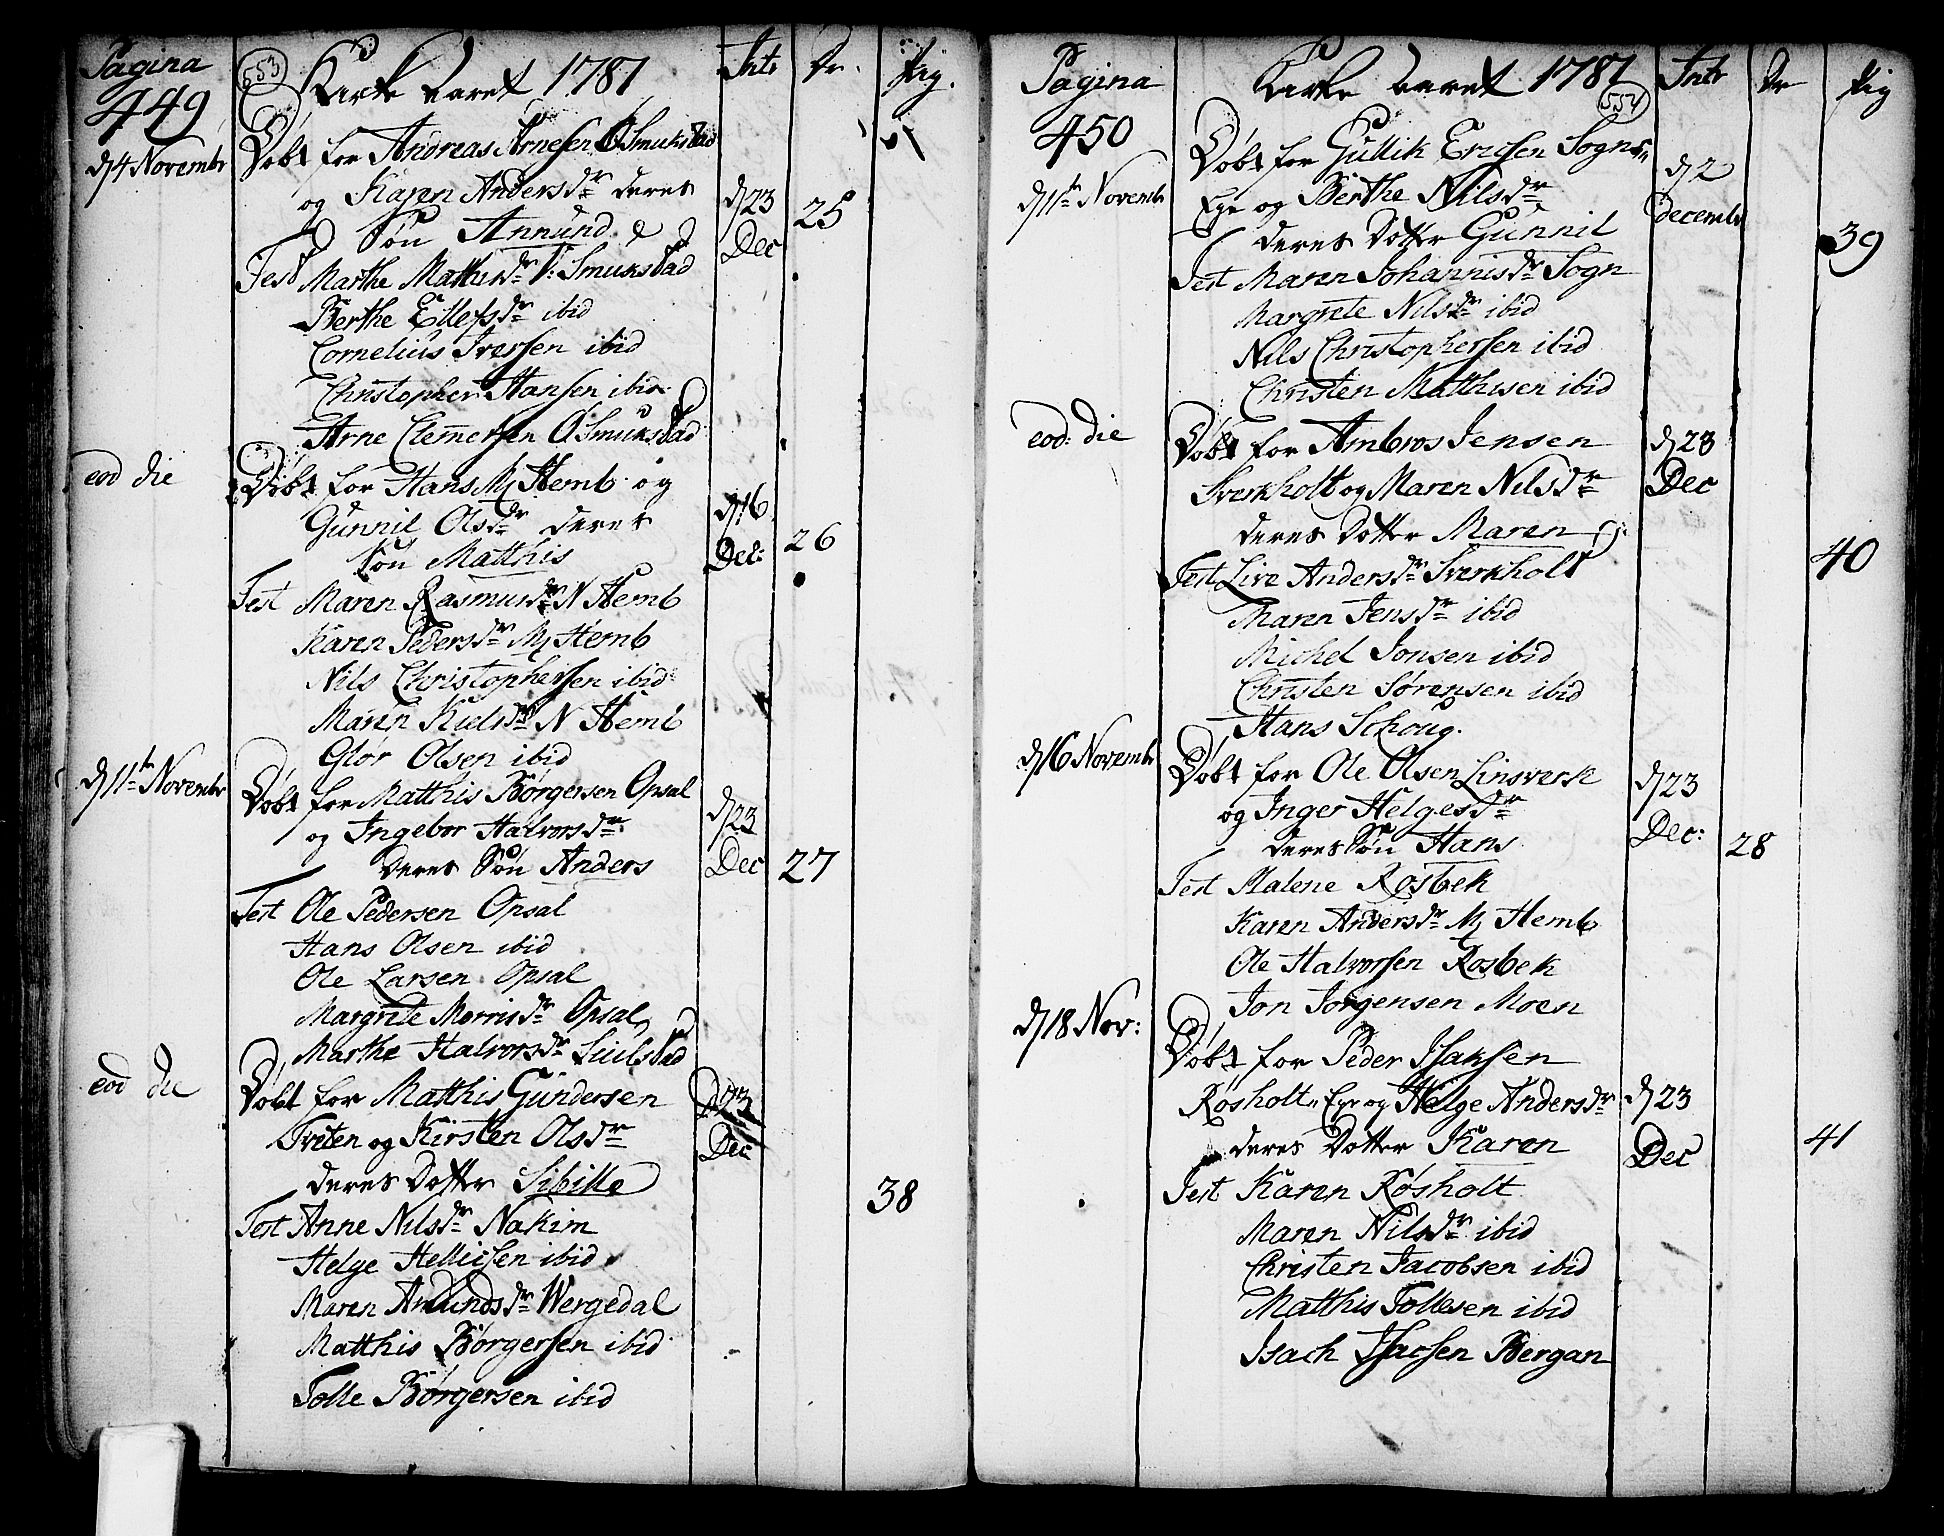 Pagina
449
553
Kirke aaret 1787
Int:
Dr.
Pig.
d/4 Novembr
Døbt for Andreas Arnesen Ø Smukstad
og Karen Andersdr deres
Søn Annund
d/23
Dec
25
Test Marthe Mathisdr V: Smukstad
Berthe Ellefsdr ibid
Cornelius Iversen ibid
Christopher Hansen ibid
Arne Clemersen Ø Smukstad
eod die
Døbt for Hans M/ Hemb og
Gunnil Olsdr deres
Søn Matthis
d/16
Dec:
26
Test Maren Rasmusdr N Hemb
Karen Pedersdr M/ Hemb
Nils Christophersen ibid
Maren Kielsdr N Hemb
Glør Olsen ibid
d/11te Novembr
Døbt for Matthis Børgersen Opsal
og Ingebor Halvorsdr
deres Søn Anders
d/23
Dec
27
Test Ole Pedersen Opsal
Hans Olsen ibid
Ole Larsen Opsal
Margrete Morrisdr Opsal
Marthe Halvorsdr
eod die
Døbt for Matthis Gundersen
Tveten og Kirsten Olsdr
deres Dotter Sibille
d/23
Dec
38
Test Anne Nilsdr Nakim
Helge Hellicsen ibid
Maren Amundsdr Wergedal
Matthis Børgersen ibid
Tolle Børgersen ibid
Pagina
450
Kirke aaret 1787
554
Int:
Dr
Pig
d/11te Novembr
Døbt for Gullik Ericsen Sogn
Eye og Berthe Nilsdr
deres Dotter Gunnil
d/2
decembr
39
Test Maren Johannisdr Sogn
Margrete Nilsdr ibid
Nils Christophersen ibid
Christen Matthisen ibid
eod: die
Døbt for Ambros Jensen
Sverkholt og Maren Nilsdr
deres Dotter Maren
d/23
Dec
40
Test Live Andersdr Sverkholt
Maren Jensdr ibid
Michel Jonsen ibid
Christen Sørensen ibid
Hans Schoug.
d/16 Novembr
Døbt for Ole Olsen Linsverk
og Inger Helgesdr
deres Søn Hans
d/23
Dec:
28
Test Malene Rosbek
Karen Andersdr M/ Hemb
Ole Halvorsen Rosbek
Jon Jorgensen Moen
d/18 Nov:
Døbt for Peder Isaksen
Røsholt Eye og Helge Andersdr
deres Dotter Karen
d/23
Dec
41
Test Karen Røsholt
Maren Nilsdr ibid
Christen Jacobsen ibid
Matthis Tollesen ibid
Isach Isacsen Bergan